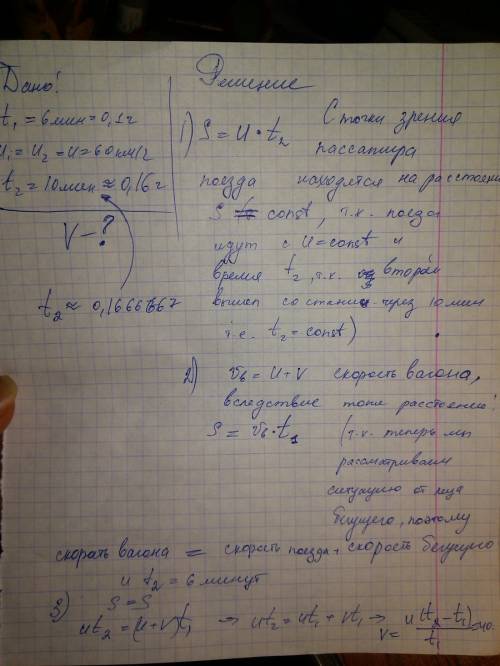 Дано:
t₁ = 6мин = 0,1ч
u₁ = u₂ = u = 60 км/ч
t₂ = 10мин ≈ 0,16ч
V – ?
t₂ ≈ 0,1666667
Решение
1) S = u · t₂ С точки зрения
пассажира
поезда находятся на расстоянии
S = const, т.к. поезда
идут с u = const и
время t₂, т.к. второй
вышел со станции через 10 мин
т.е. t₂ = const)
2) v_b = u + v скорость вагона,
вследствие тоже расстояние:
S = v_b · t₁ (т.к. теперь мы
рассматриваем
ситуацию от лица
бегущего, поэтому
скорость вагона = скорость поезда + скорость бегущего
и t₂ = 6 минут
3) S = S
ut₂ = (u + v)t₁ → ut₂ = ut₁ + vt₁ → v = u(t₂ – t₁)/t₁ = 40.